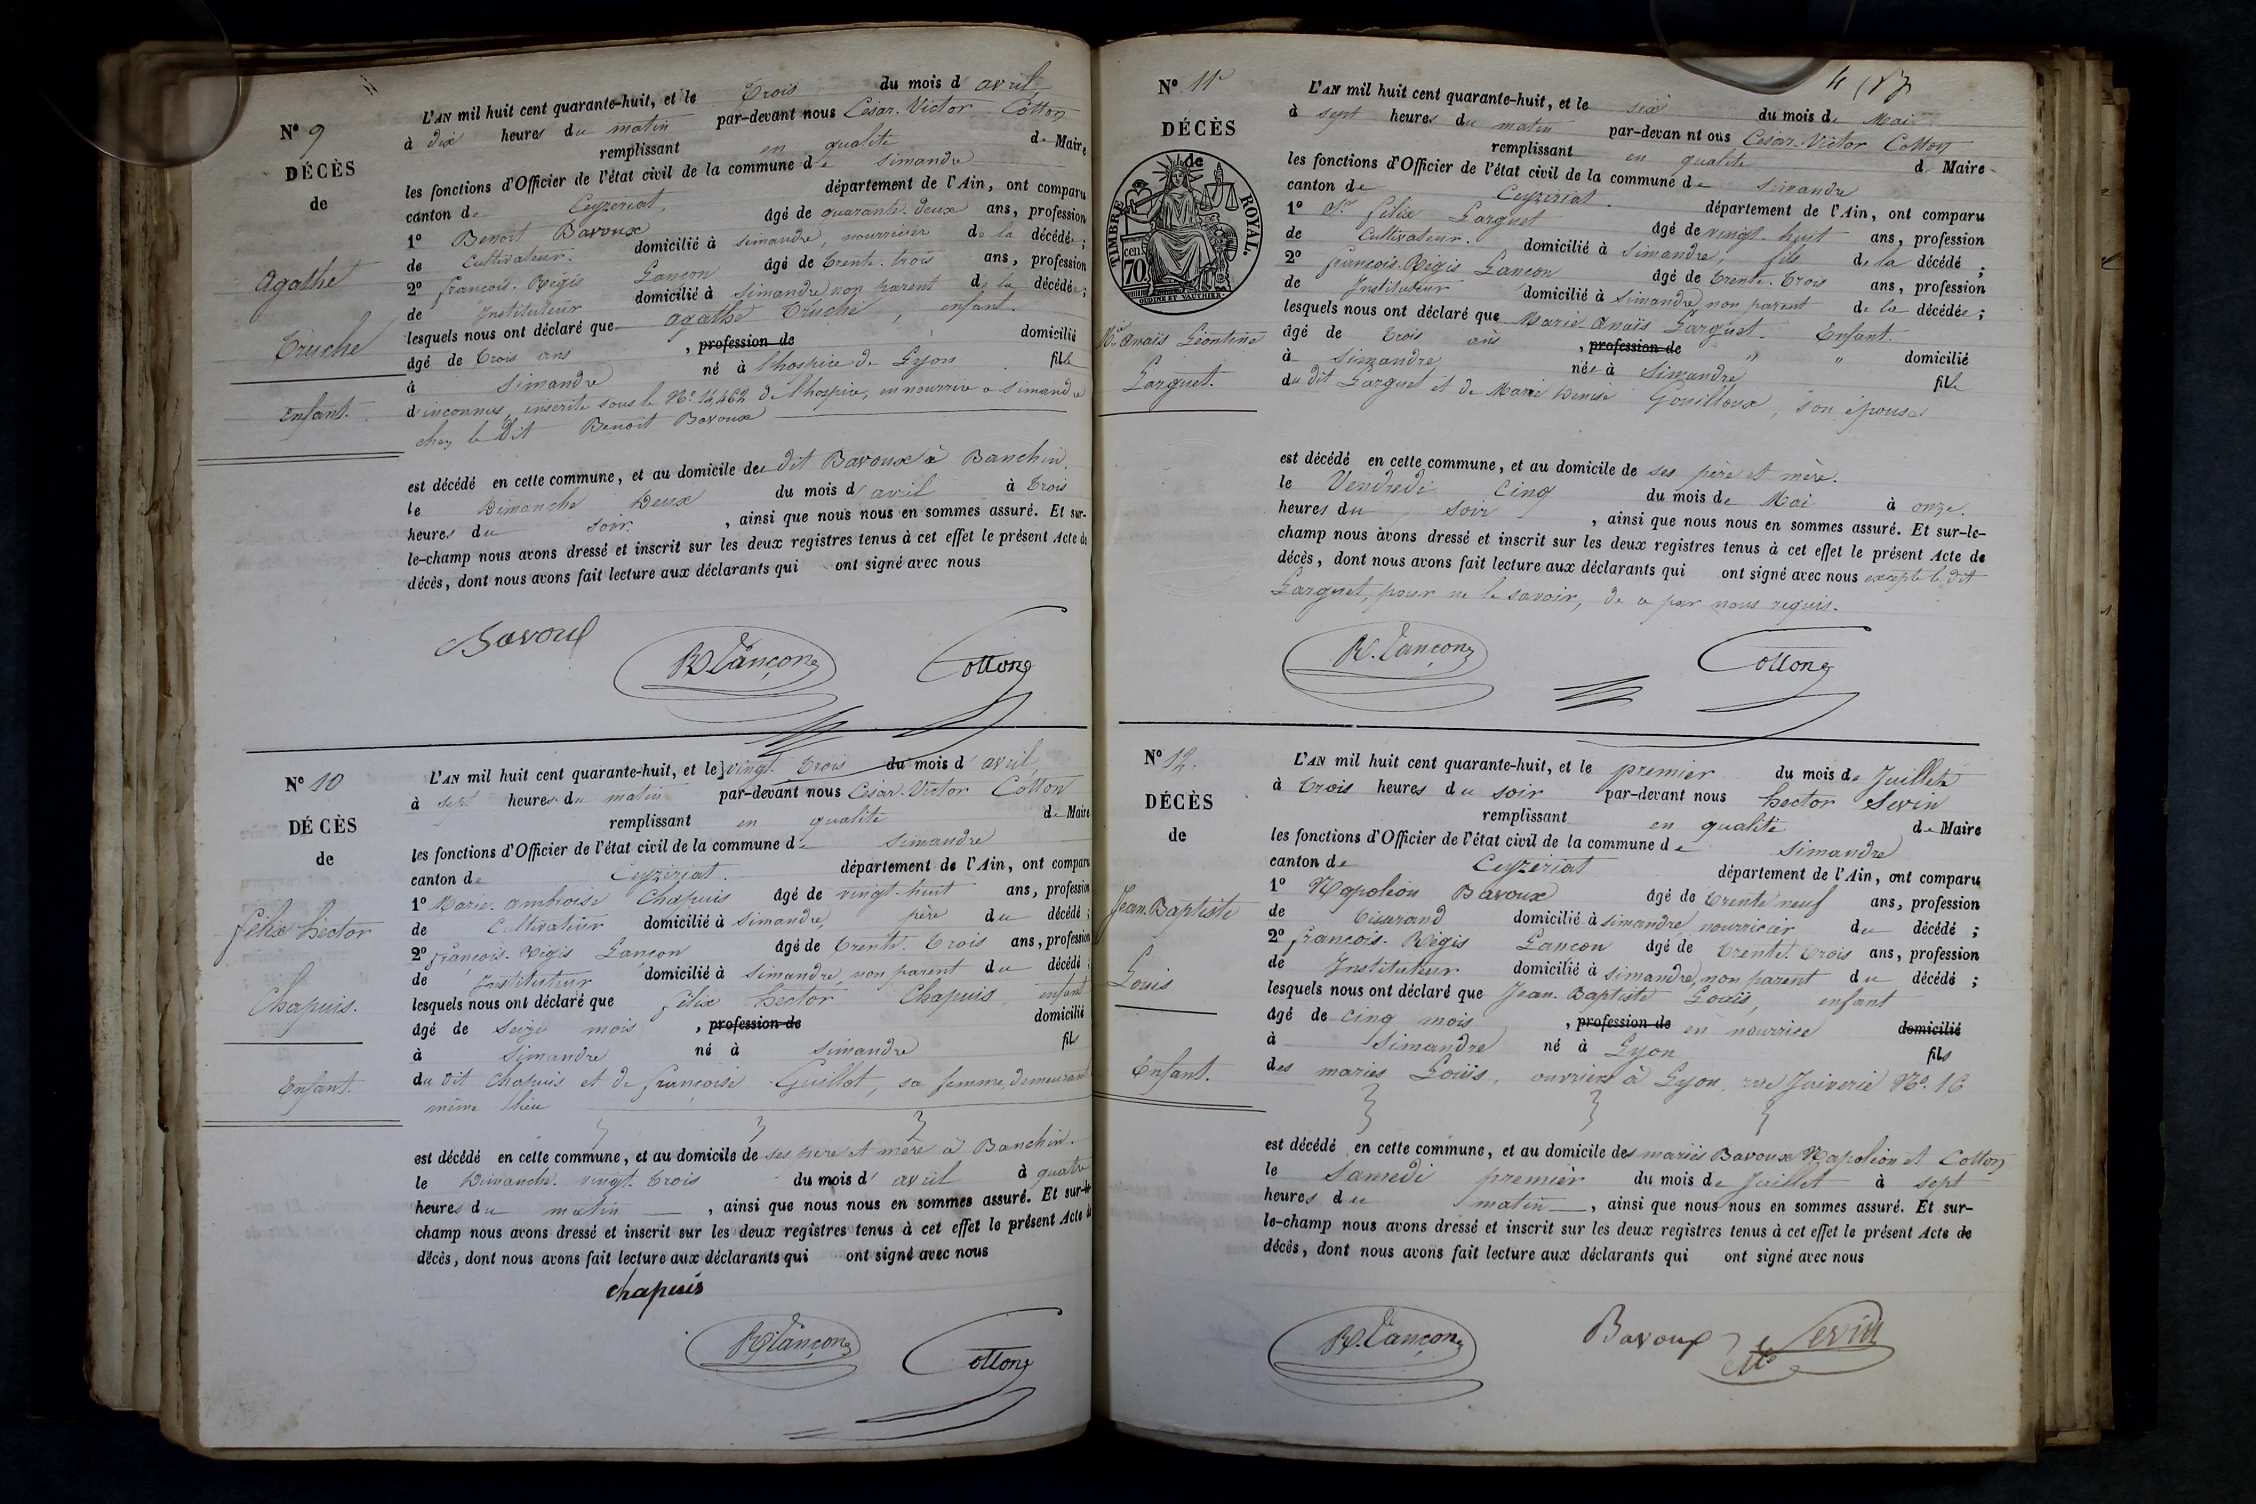 N° 9
DÉCÈS
de
Agathe
Truche
Enfant.
L'AN mil huit cent quarante-huit, et le Trois du mois d' avril
à dix heures du matin par-devant nous César-Victor Cotton
remplissant en qualité de Maire
les fonctions d'Officier de l'état civil de la commune de Simandre
canton de Ceyzeriat, département de l'Ain, ont comparu
1° Benoit Bavoux âgé de quarante-deux ans, profession
de Cultivateur. domicilié à Simandre, nourricier de la décédée;
2° François-Régis Lançon âgé de trente-trois ans, profession
de Instituteur domicilié à Simandre, non parent de la décédée;
lesquels nous ont déclaré que Agathe Truche, enfant.
âgé de Trois ans, profession de domicilié
à Simandre né à l'hospice de Lyon fille
d'inconnus, inscrite sous le N° 14,462 de l'hospice, en nourrice a Simandre
chez le Dit Benoit Bavoux
est décédé en cette commune, et au domicile de dit Bavoux à Banchin.
le Dimanche Deux du mois d' avril à Trois
heures du soir, ainsi que nous nous en sommes assuré. Et sur-
le-champ nous avons dressé et inscrit sur les deux registres tenus à cet effet le présent Acte de
décès, dont nous avons fait lecture aux déclarants qui ont signé avec nous
Bavoux
R. Lançon
Cotton
N° 10
DÉCÈS
de
Félix Hector
Chapuis.
Enfant.
L'AN mil huit cent quarante-huit, et le vingt-trois du mois d' avril
à sept heures du matin par-devant nous César-Victor Cotton
remplissant en qualité de Maire
les fonctions d'Officier de l'état civil de la commune de Simandre
canton de Ceyzériat. département de l'Ain, ont comparu
1° Marie-ambroise Chapuis âgé de vingt-huit ans, profession
de Cultivateur domicilié à Simandre, père du décédé;
2° François-Régis Lançon âgé de trente-trois ans, profession
de Instituteur domicilié à Simandre, non parent du décédé;
lesquels nous ont déclaré que Félix Hector Chapuis enfant
âgé de Seize mois, profession de domicilié
à Simandre né à Simandre fils
du Dit Chapuis et de Françoise Guillot, sa femme, demeurant
même lieu
est décédé en cette commune, et au domicile de ses père et mère à Banchin.
le Dimanche vingt-trois du mois d' avril à quatre
heures du matin, ainsi que nous nous en sommes assuré. Et sur-le-
champ nous avons dressé et inscrit sur les deux registres tenus à cet effet le présent Acte de
décès, dont nous avons fait lecture aux déclarants qui ont signé avec nous
Chapuis
R. Lançon
Cotton
N° 11
DÉCÈS
de
TIMBRE ROYAL.
70 cen
OUDINE ET VAUTHIER.
Mie Anaïs Léontine
Larguet.
L'AN mil huit cent quarante-huit, et le six du mois de Mai
à sept heures du matin par-devan nt ous César-Victor Cotton
remplissant en qualité de Maire
les fonctions d'Officier de l'état civil de la commune de Simandre
canton de Ceyzériat. département de l'Ain, ont comparu
1° Sr Félix Larguet âgé de vingt-huit ans, profession
de Cultivateur. domicilié à Simandre, de la décédé;
2° François-Régis Lançon âgé de Trente-trois ans, profession
de Instituteur domicilié à Simandre, non parent de la décédée;
lesquels nous ont déclaré que Marie Anaïs Larguet. Enfant.
âgé de trois ans, profession de " " domicilié
à Simandre née à Simandre fille
du dit Larguet et de Marie Denise Gouilloux, son épouse
est décédé en cette commune, et au domicile de ses père et mère.
le Vendredi Cinq du mois de Mai à onze.
heures du soir, ainsi que nous nous en sommes assuré. Et sur-le-
champ nous avons dressé et inscrit sur les deux registres tenus à cet effet le présent Acte de
décès, dont nous avons fait lecture aux déclarants qui ont signé avec nous excepté le dit
Larguet, pour ne le savoir, de ce par nous requis.
R. Lançon
Cotton
N° 12.
DÉCÈS
de
Jean-Baptiste
Louis
Enfant.
L'AN mil huit cent quarante-huit, et le premier du mois de Juillet
à Trois heures du soir par-devant nous hector Sevin
remplissant en qualité de Maire
les fonctions d'Officier de l'état civil de la commune de Simandre
canton de Ceyzériat département de l'Ain, ont comparu
1° Napoléon Bavoux âgé de trente neuf ans, profession
de Tisserand domicilié à Simandre, nourricier du décédé;
2° François-Régis Lançon âgé de trente-trois ans, profession
de Instituteur domicilié à Simandre, non parent du décédé;
lesquels nous ont déclaré que Jean-Baptiste Louis, enfant
âgé de cinq mois, profession de en nourrice domicilié
à Simandre né à Lyon fils
des mariés Louis, ouvriers à Lyon, rue Juiverie N° 16
est décédé en cette commune, et au domicile des mariés Bavoux Napoléon et Cotton
le Samedi premier du mois de Juillet à sept
heures du matin, ainsi que nous nous en sommes assuré. Et sur-
le-champ nous avons dressé et inscrit sur les deux registres tenus à cet effet le présent Acte de
décès, dont nous avons fait lecture aux déclarants qui ont signé avec nous
R. Lançon
Bavoux
Sevin